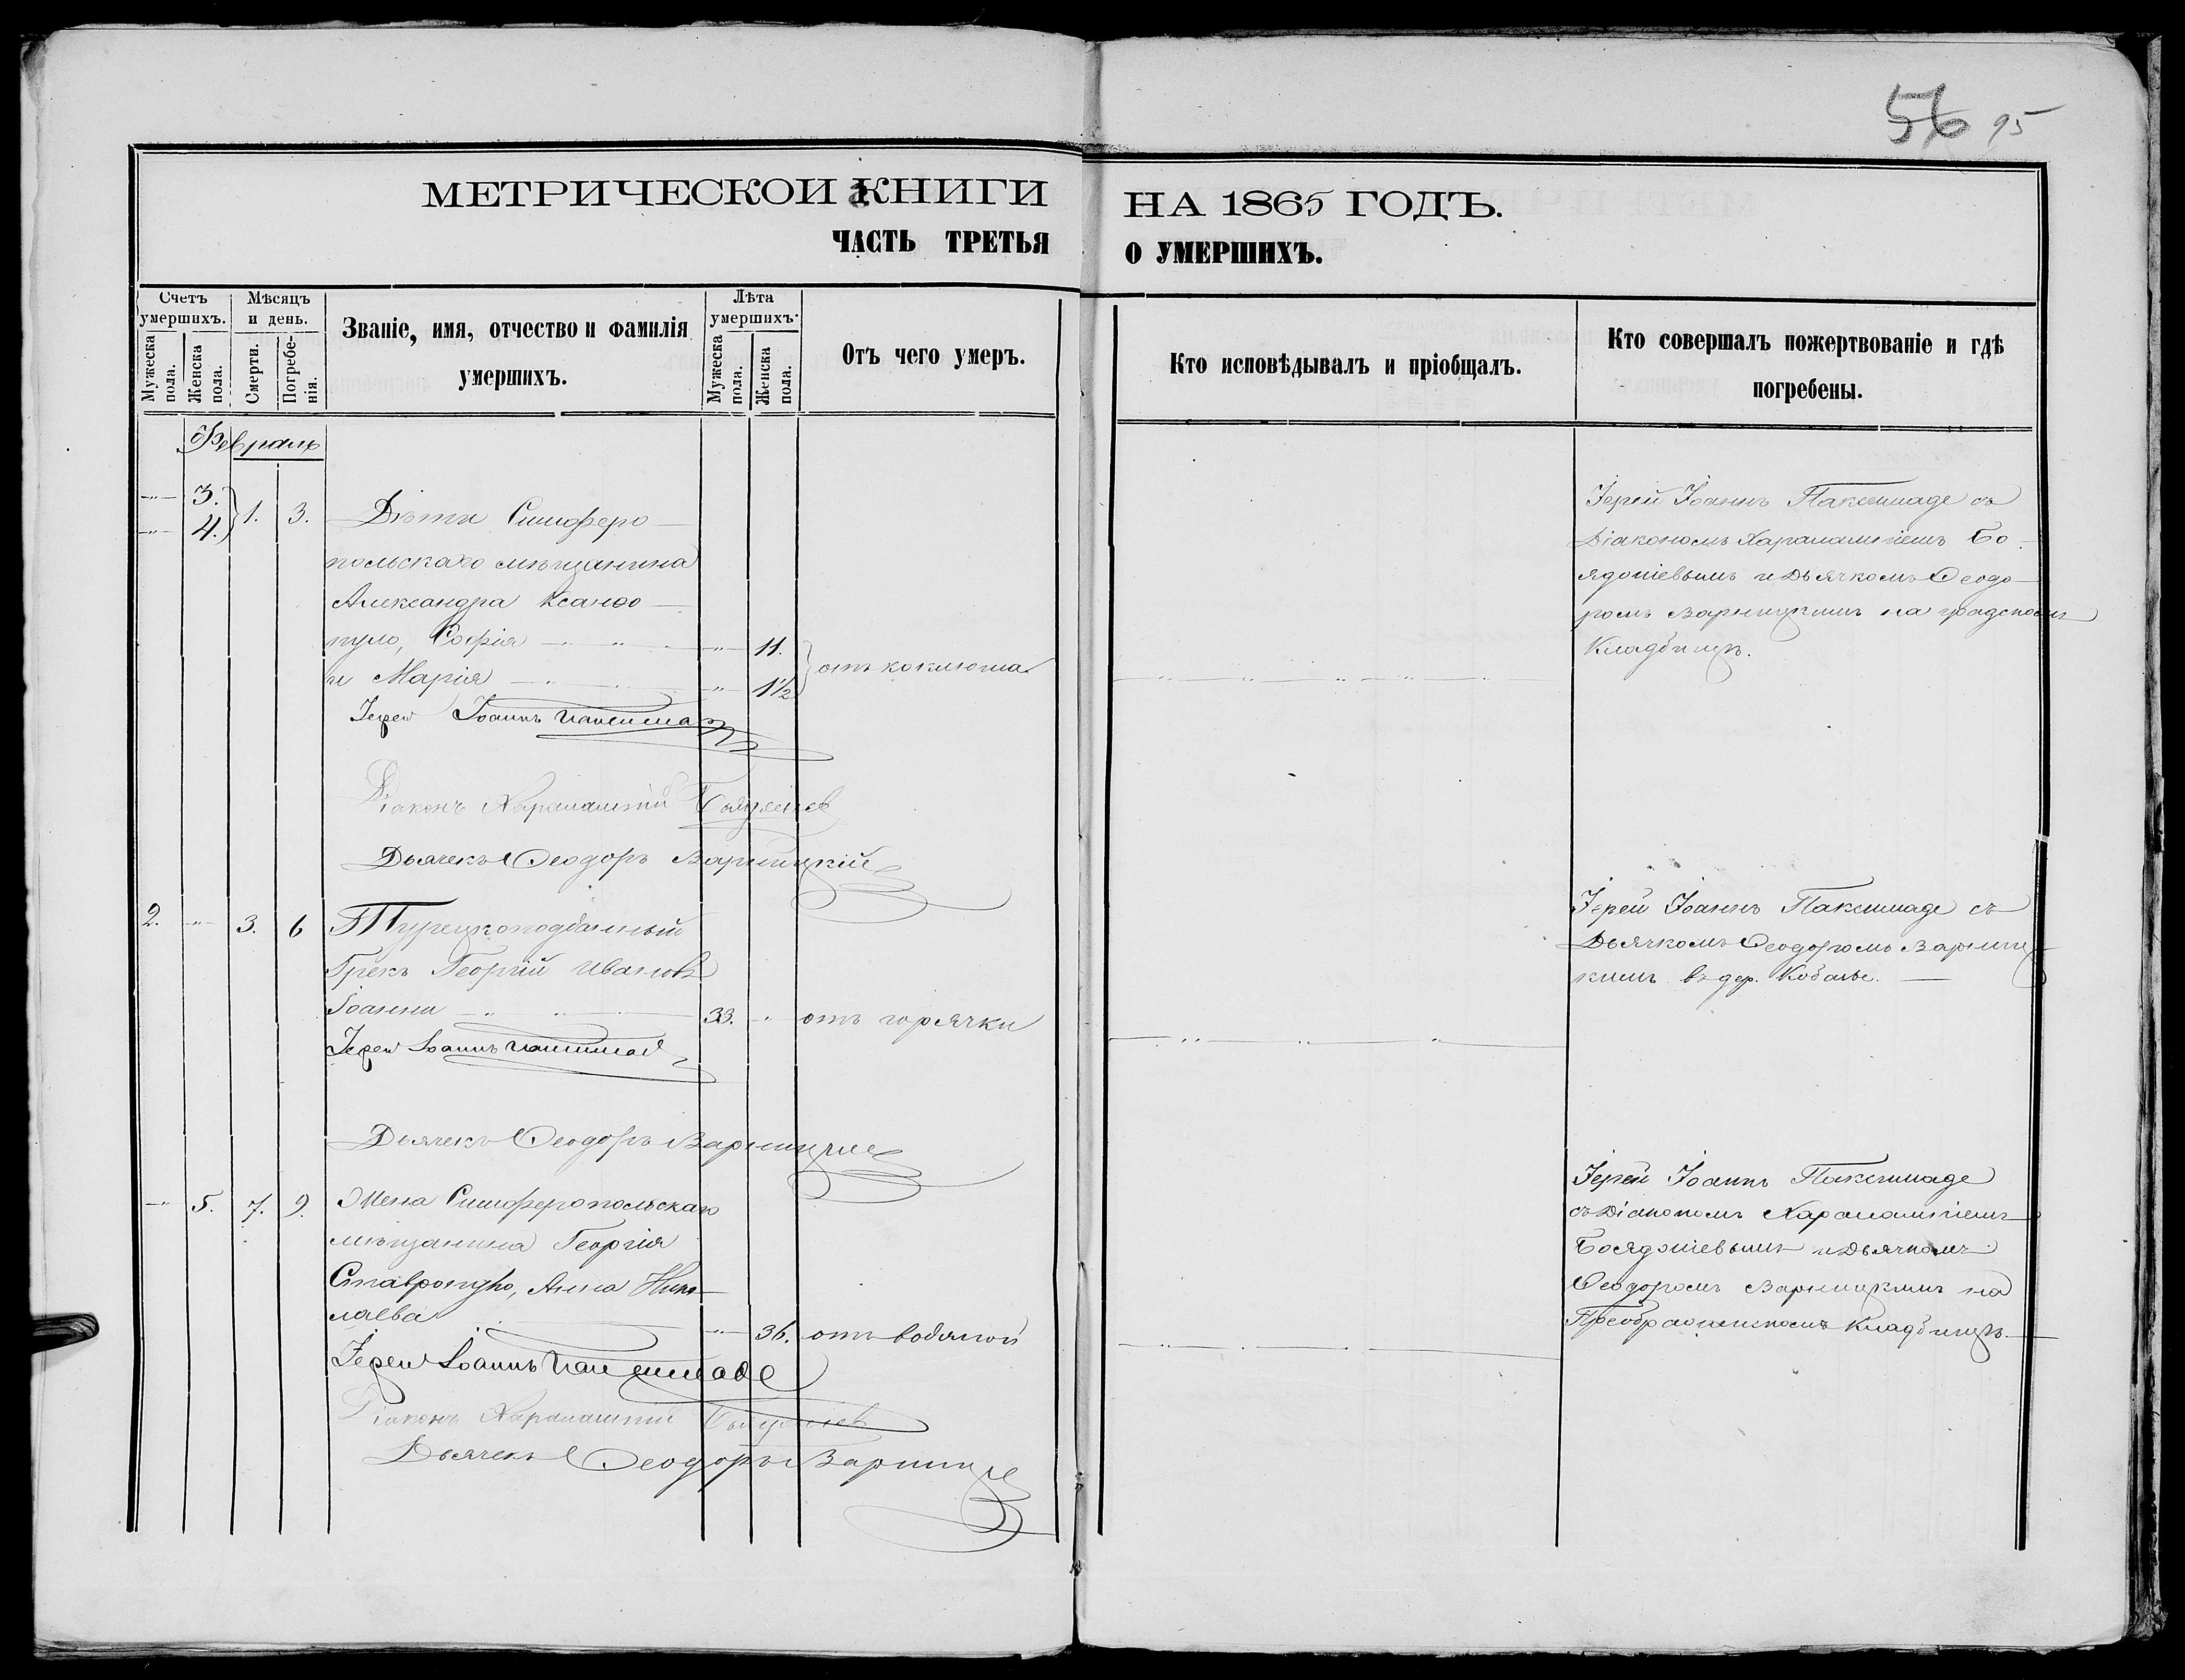 56 95
МЕТРИЧЕСКОЙ КНИГИ НА 1865 ГОДЪ.
ЧАСТЬ ТРЕТЬЯ О УМЕРШИХЪ.
Счетъ умершихъ.
Мужеска пола.
Женска пола.
Мѣсяцъ и день.
Смерти.
Погребенія.
Званіе, имя, отчество и фамилія
умершихъ.
Лѣта умершихъ.
Мужеска пола.
Женска пола.
Отъ чего умеръ.
Кто исповѣдывалъ и пріобщалъ.
Кто совершалъ пожертвованіе и гдѣ
погребены.
Февраль
3.
4. 1. 3. Дѣти Симферо-
польскаго мѣщанина
Александра Ксанѳо-
пуло, Софія 11.
и Марія 1½ отъ коклюша
Іерей Іоаннъ
Діаконъ Харалампій
Дьячекъ Ѳеодоръ Варницкій
Іерей Іоаннъ Паксимаде съ
Діакономъ Харалампіемъ Бо-
ядожіевымъ и Дьячкомъ Ѳеодо-
ромъ Варницкимъ на градскомъ
Кладбищѣ.
2. 3. 6 Турецкоподданный
Грекъ Георгій Ивановъ
Іоанни 33. отъ горячки
Іерей Іоаннъ
Дьячекъ Ѳеодоръ Варницкій
Іерей Іоаннъ Паксимаде съ
Дьячкомъ Ѳеодоромъ Варниц-
кимъ въ дер. Кобазы.
5. 7. 9. Жена Симферопольскаго
мѣщанина Георгія
Ставропуло, Анна Нико-
лаева 36. отъ водяной
Іерей Іоаннъ Паксимаде
Діаконъ Харалампій
Дьячекъ Ѳеодоръ Варницкій
Іерей Іоаннъ Паксимаде
съ Діакономъ Харалампіемъ
Боядожіевымъ и Дьячкомъ
Ѳеодоромъ Варницкимъ на
Преображенскомъ Кладбищѣ.